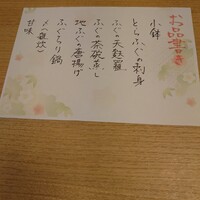 お品書き
小鉢
とらふぐの刺身
ふぐの天麩羅
ふぐの茶碗蒸し
地ふぐの唐揚げ
ふぐちり鍋
〆(雑炊)
甘味